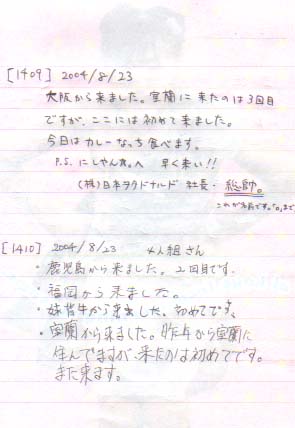 [1409] 2004/8/23
大阪から来ました。室蘭に来たのは3回目
ですが、ここには初めて来ました。
今日はカレーなっち食べます。
P.S. にしやんま。へ 早く来い!!
(株)日本ヲクドナルド 社長・総帥。
これが名前です。"。"まで
[1410] 2004/8/23 4人組さん
・鹿児島から来ました。2回目です。
・福岡から来ました。
・妹背牛から来ました。初めてです。
・室蘭から来ました。昨年から室蘭に
住んでますが、来たのは初めてです。
また来ます。